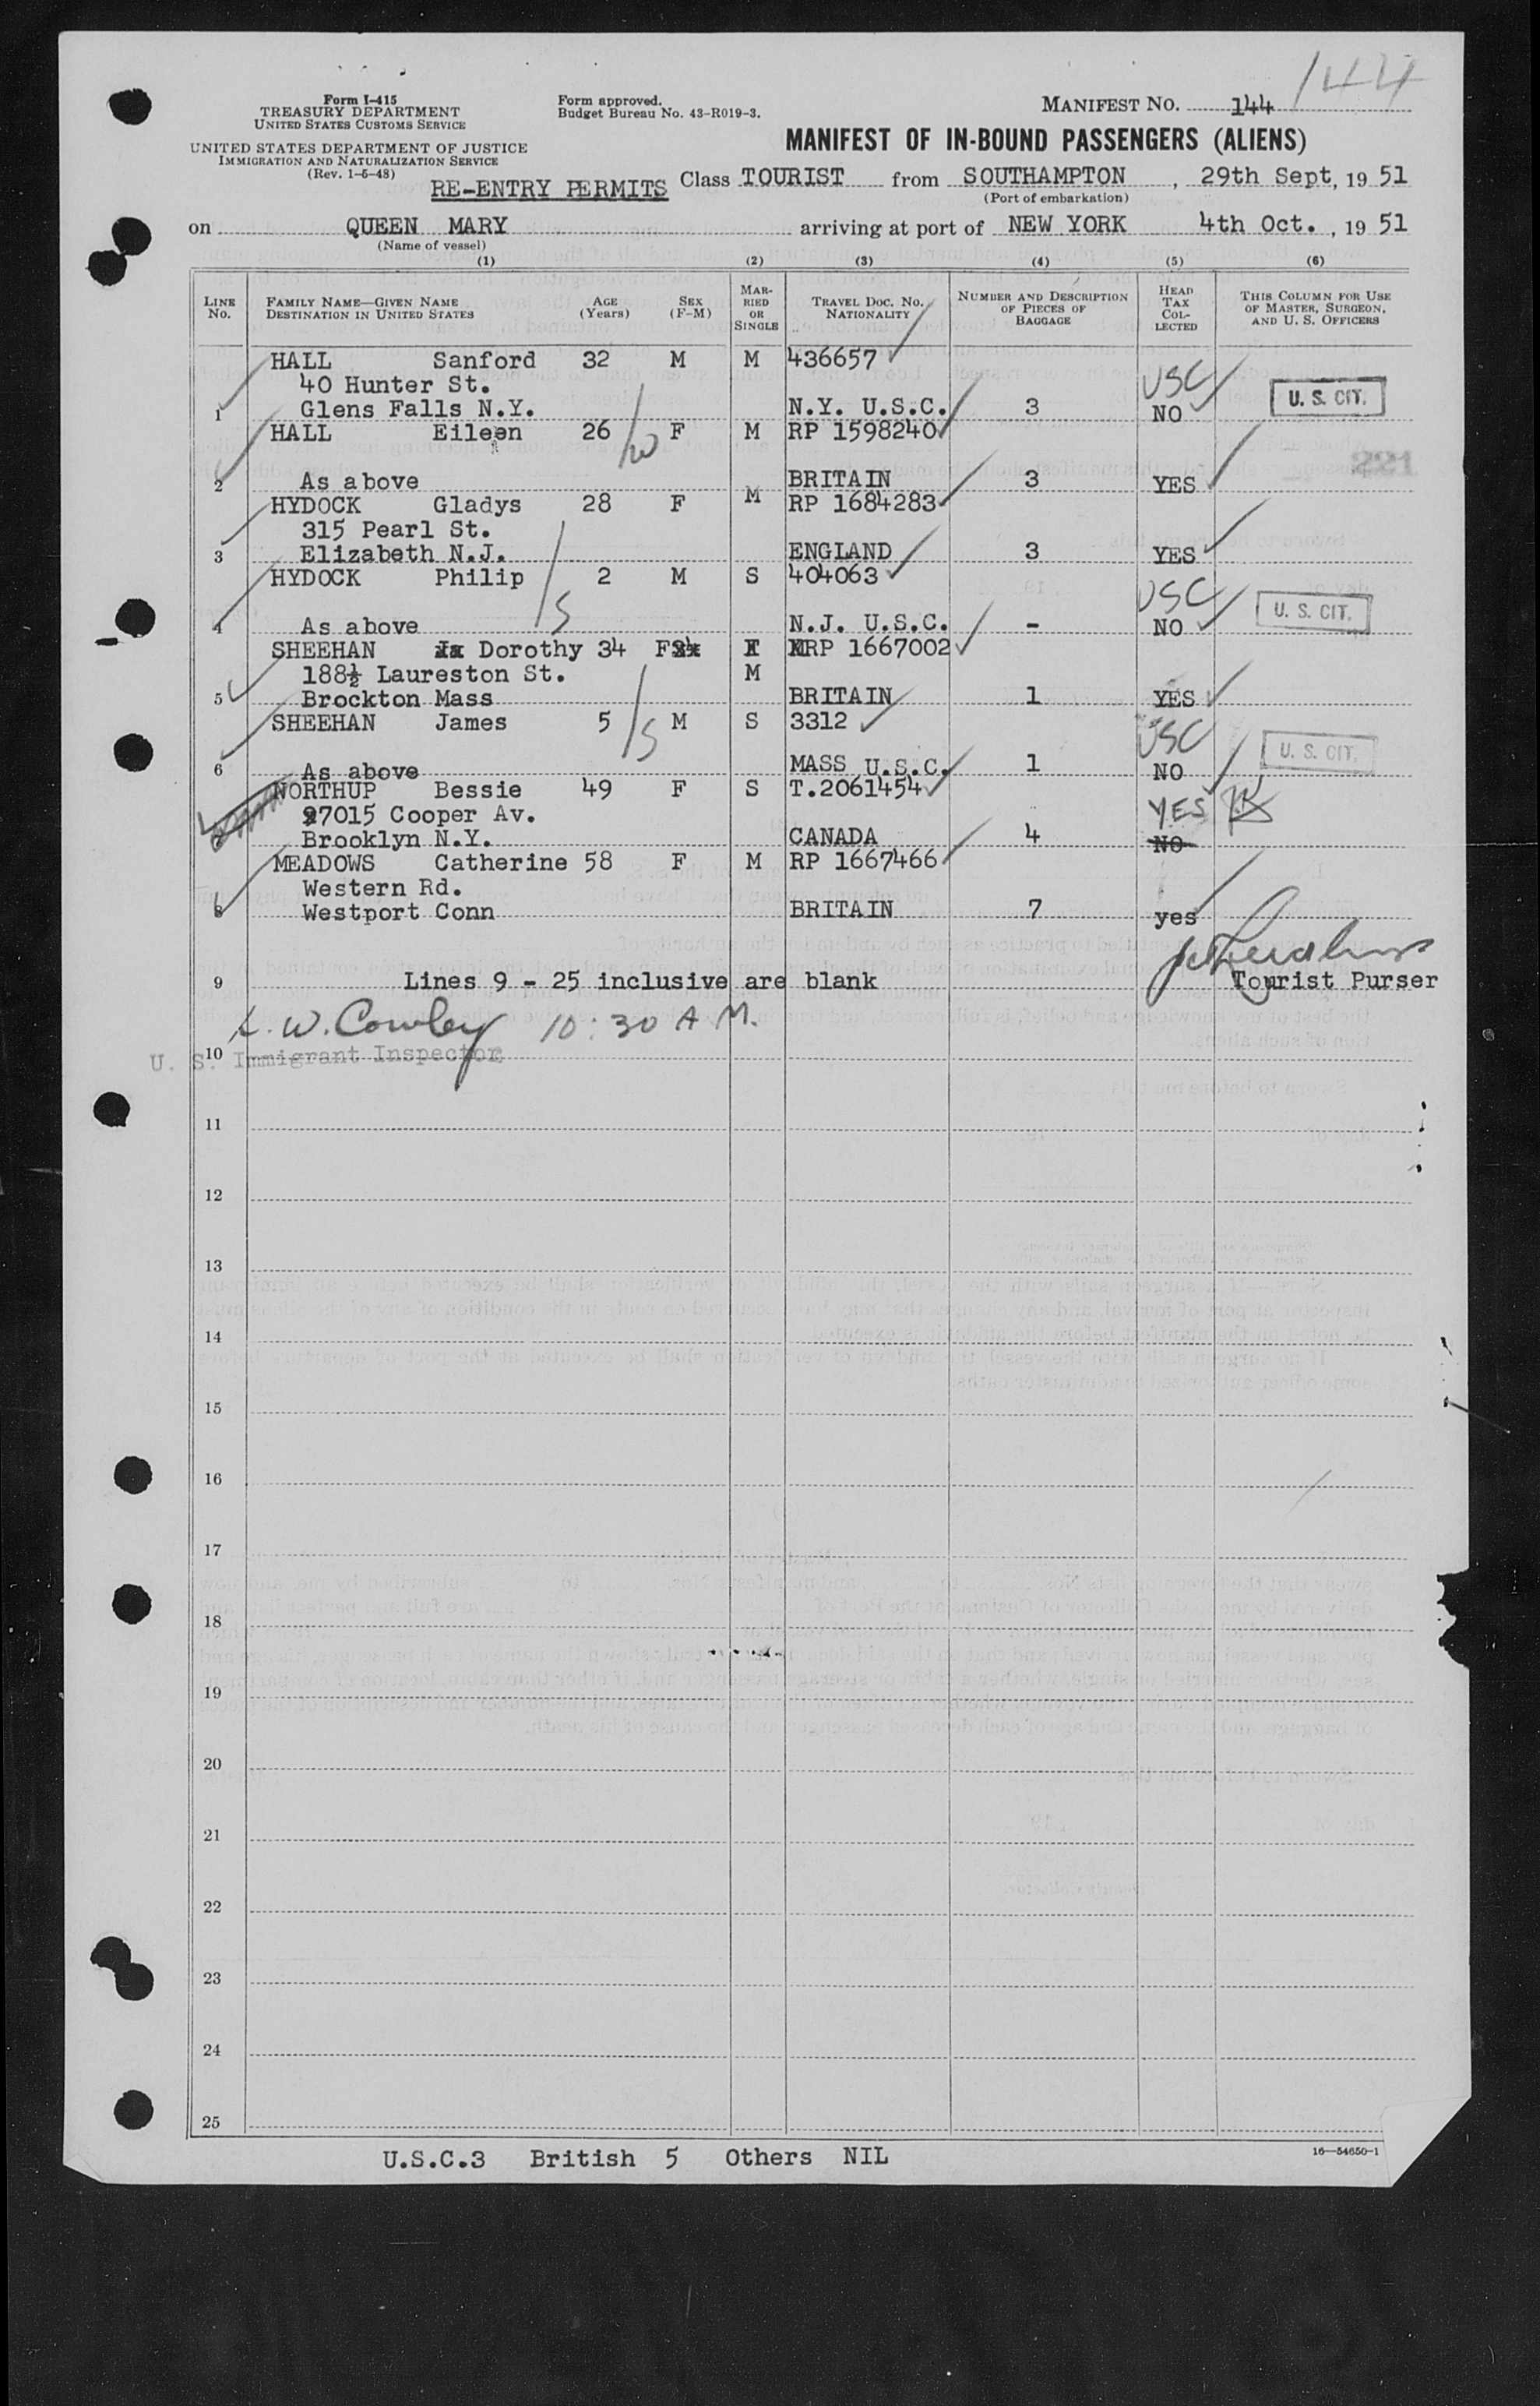 144
Form I-415
TREASURY DEPARTMENT
UNITED STATES CUSTOMS SERVICE
UNITED STATES DEPARTMENT OF JUSTICE
IMMIGRATION AND NATURALIZATION SERVICE
(Rev. 1-5-48)
Form approved.
Budget Bureau No. 43-R019-3.
MANIFEST NO. 144
MANIFEST OF IN-BOUND PASSENGERS (ALIENS)
RE-ENTRY PERMITS Class TOURIST from SOUTHAMPTON, 29th Sept, 19 51
(Port of embarkation)
on QUEEN MARY arriving at port of NEW YORK 4th Oct., 19 51
(Name of vessel)
(1) (2) (3) (4) (5) (6)
LINE NO. FAMILY NAME—GIVEN NAME DESTINATION IN UNITED STATES AGE (Years) SEX (F-M) MARRIED OR SINGLE TRAVEL DOC. NO. NATIONALITY NUMBER AND DESCRIPTION OF PIECES OF BAGGAGE HEAD TAX COLLECTED THIS COLUMN FOR USE OF MASTER, SURGEON, AND U. S. OFFICERS
HALL Sanford 32 M M 436657
40 Hunter St. USC
1 Glens Falls N.Y. N.Y. U.S.C. 3 NO U. S. CIT.
HALL Eileen 26 F M RP 1598240
W
221
2 As above BRITAIN 3 YES
HYDOCK Gladys 28 F M RP 1684283
315 Pearl St.
3 Elizabeth N.J. ENGLAND 3 YES
HYDOCK Philip 2 M S 404063
S USC
4 As above N.J. U.S.C. - NO U. S. CIT.
SHEEHAN Dorothy 34 F RP 1667002
188½ Laureston St. M
5 Brockton Mass BRITAIN 1 YES
SHEEHAN James 5 M S 3312
S USC
6 As above MASS U.S.C. 1 NO U. S. CIT.
NORTHUP Bessie 49 F S T.2061454
27015 Cooper Av. YES
Brooklyn N.Y. CANADA 4 NO
MEADOWS Catherine 58 F M RP 1667466
Western Rd.
8 Westport Conn BRITAIN 7 yes
9 Lines 9 - 25 inclusive are blank Tourist Purser
L. W. Cowley 10:30 A M.
10 U. S. Immigrant Inspector
11
12
13
14
15
16
17
18
19
20
21
22
23
24
25
U.S.C.3 British 5 Others NIL
16—54650-1